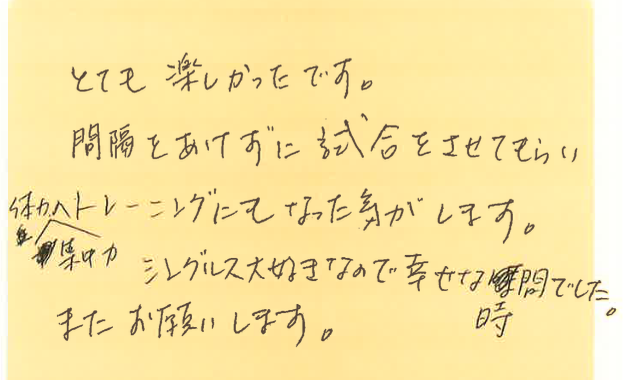 とても楽しかったです。
間隔をあけずに試合をさせてもらい
体力、集中力トレーニングにもなった気がします。
シングルス大好きなので幸せな時間でした。
またお願いします。